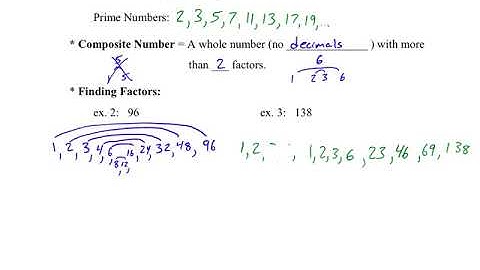 Prime Numbers: 2, 3, 5, 7, 11, 13, 17, 19, ...
* Composite Number = A whole number (no decimals) with more
than 2 factors.
6
1 2 3 6
* Finding Factors:
ex. 2: 96 ex. 3: 138
1, 2, 3, 4, 6, 16, 24, 32, 48, 96
8 12
1, 2, 1, 2, 3, 6, 23, 46, 69, 138